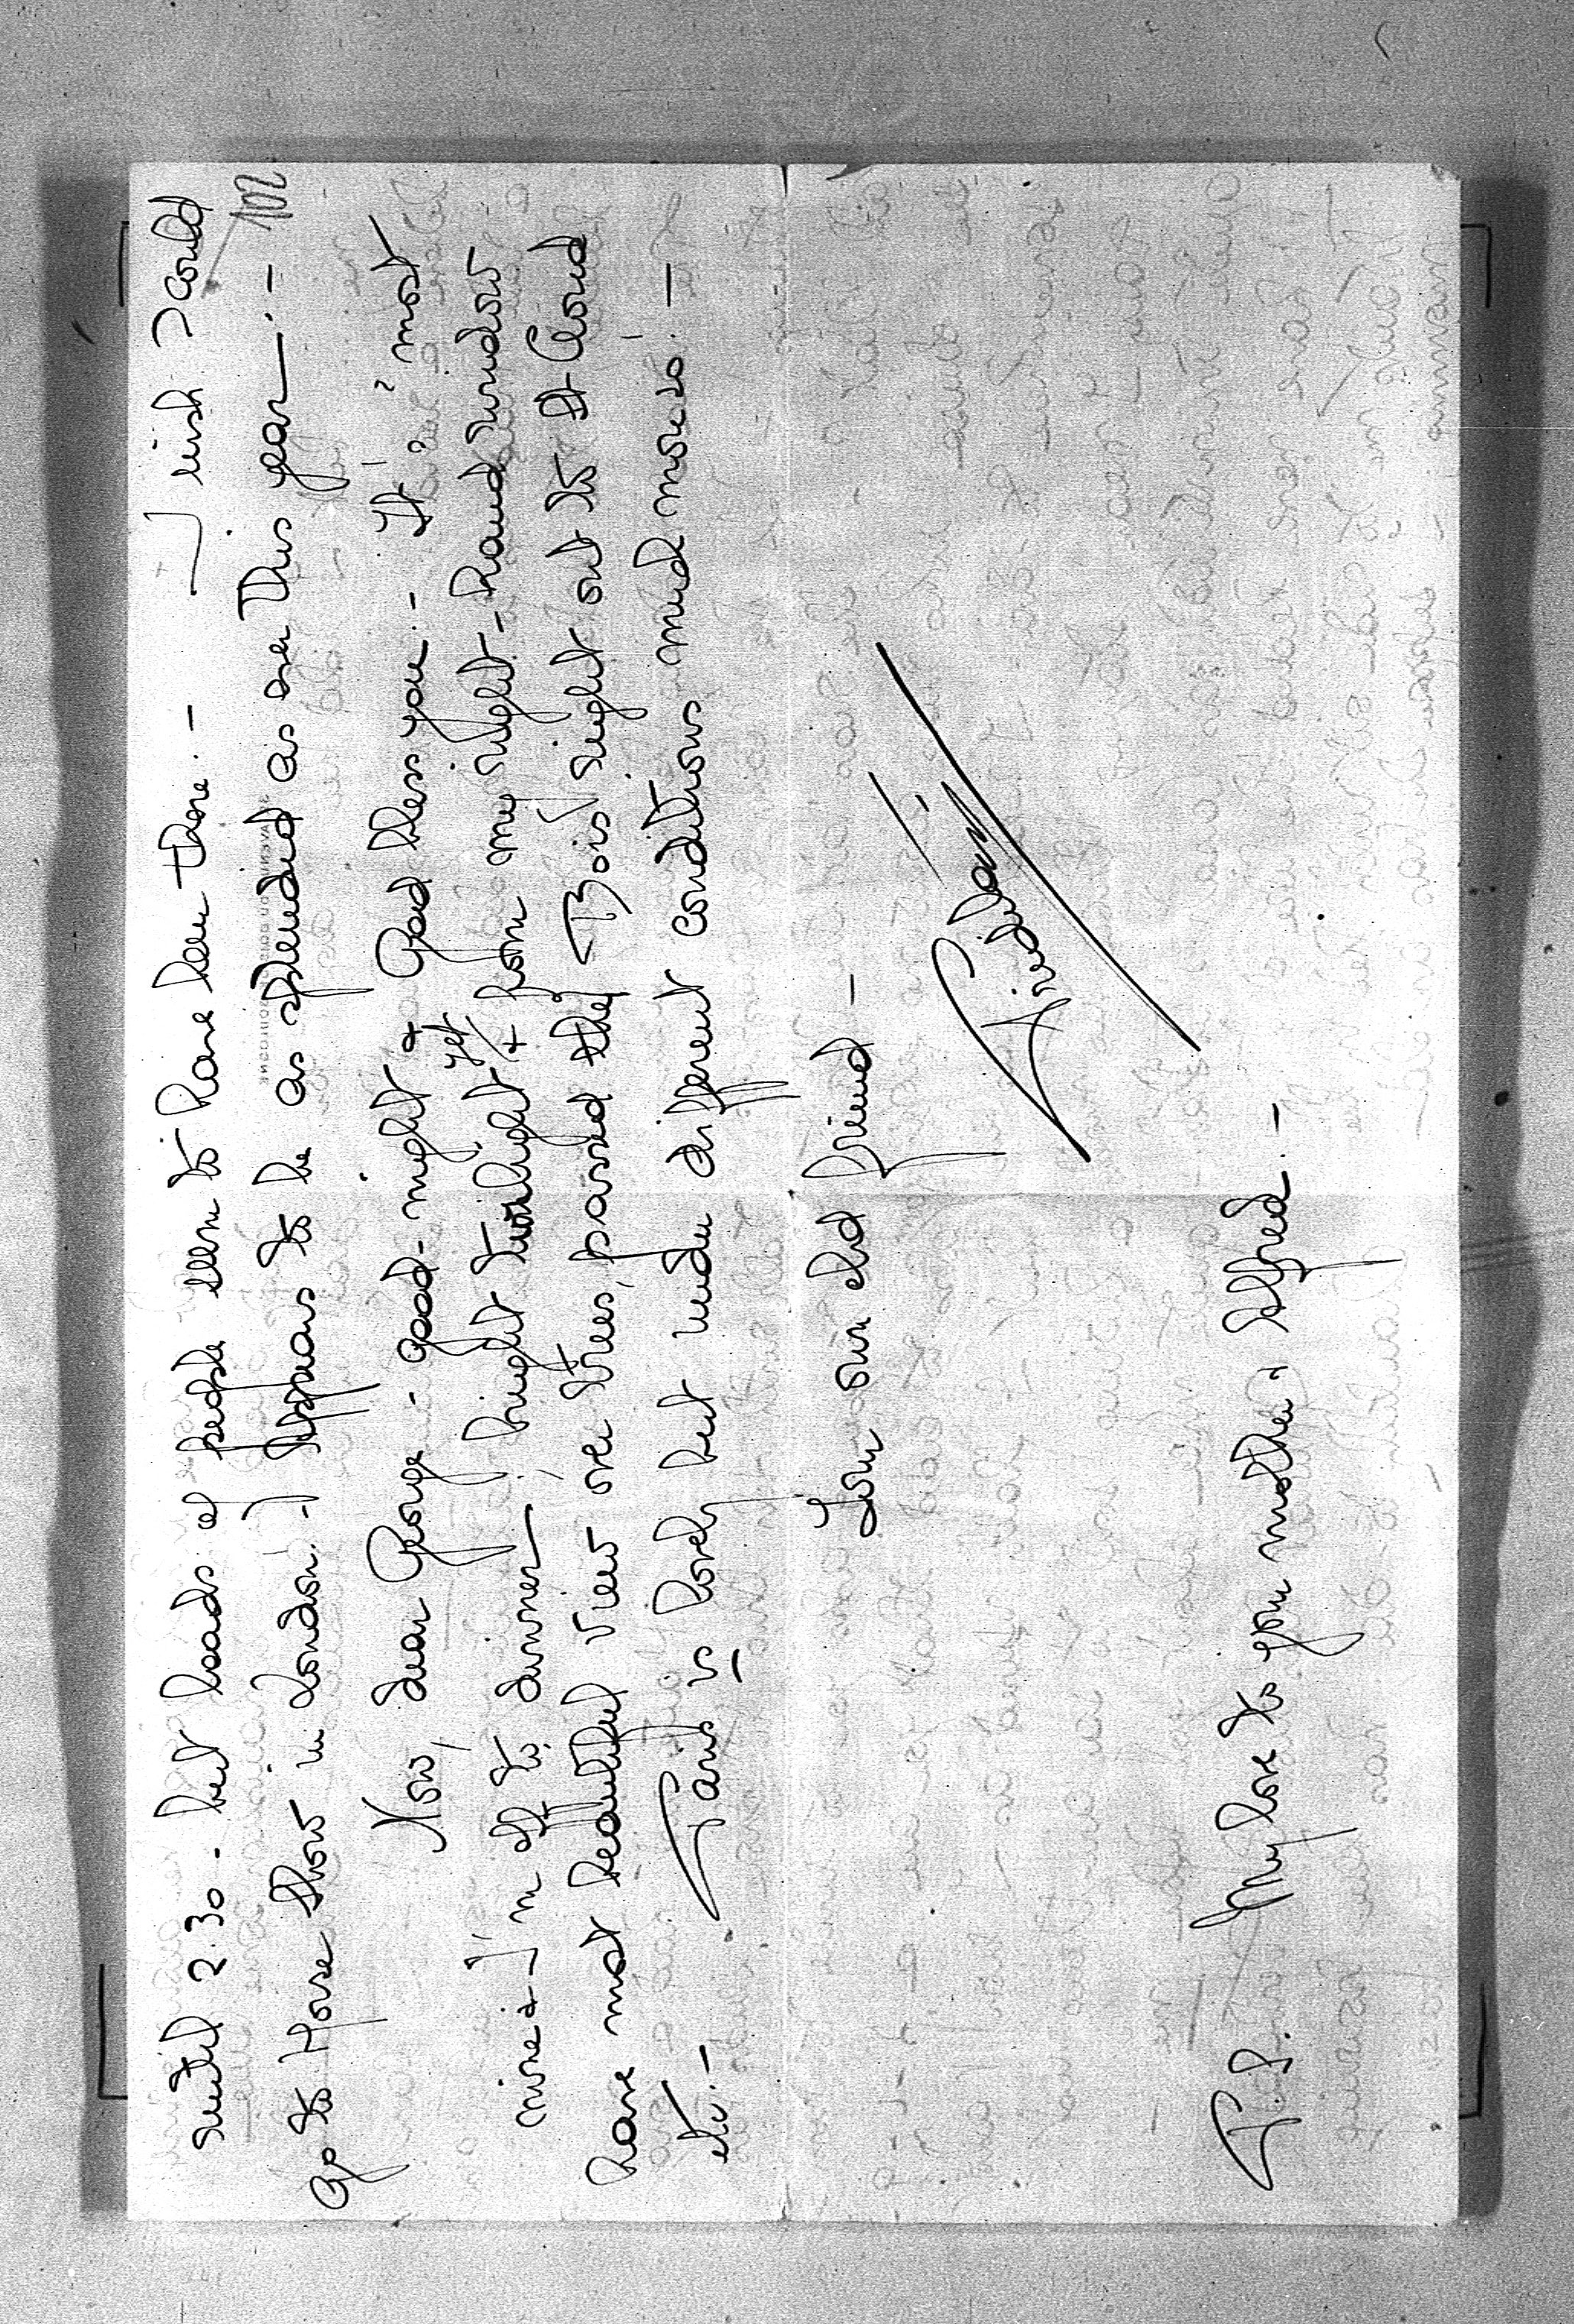 until 2.30 - but loads of people seem to have been there. - I wish I could
102
go to Horse Show in London. - Appears to be as splendid as ever this year. -
Now, dear George - good-night & God bless you. - It is most
nine & I'm off to dinner bright twilight yet & from my right-hand window
have most beautiful view over trees, passed the Bois right out to St Cloud
etc. - Paris is lovely but under different conditions much more so. -
Your own old friend -
P.S. My love to your mother & Alfred. -